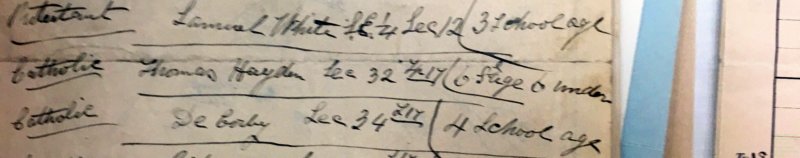 Protestant Samuel White S.E. 1/4 Sec 12 ( 3 School age
Catholic Thomas Hayden Sec 32 Tp 17 ( 6 S age 6 under
Catholic De Corby Sec 34 Tp 17 ( 4 School age